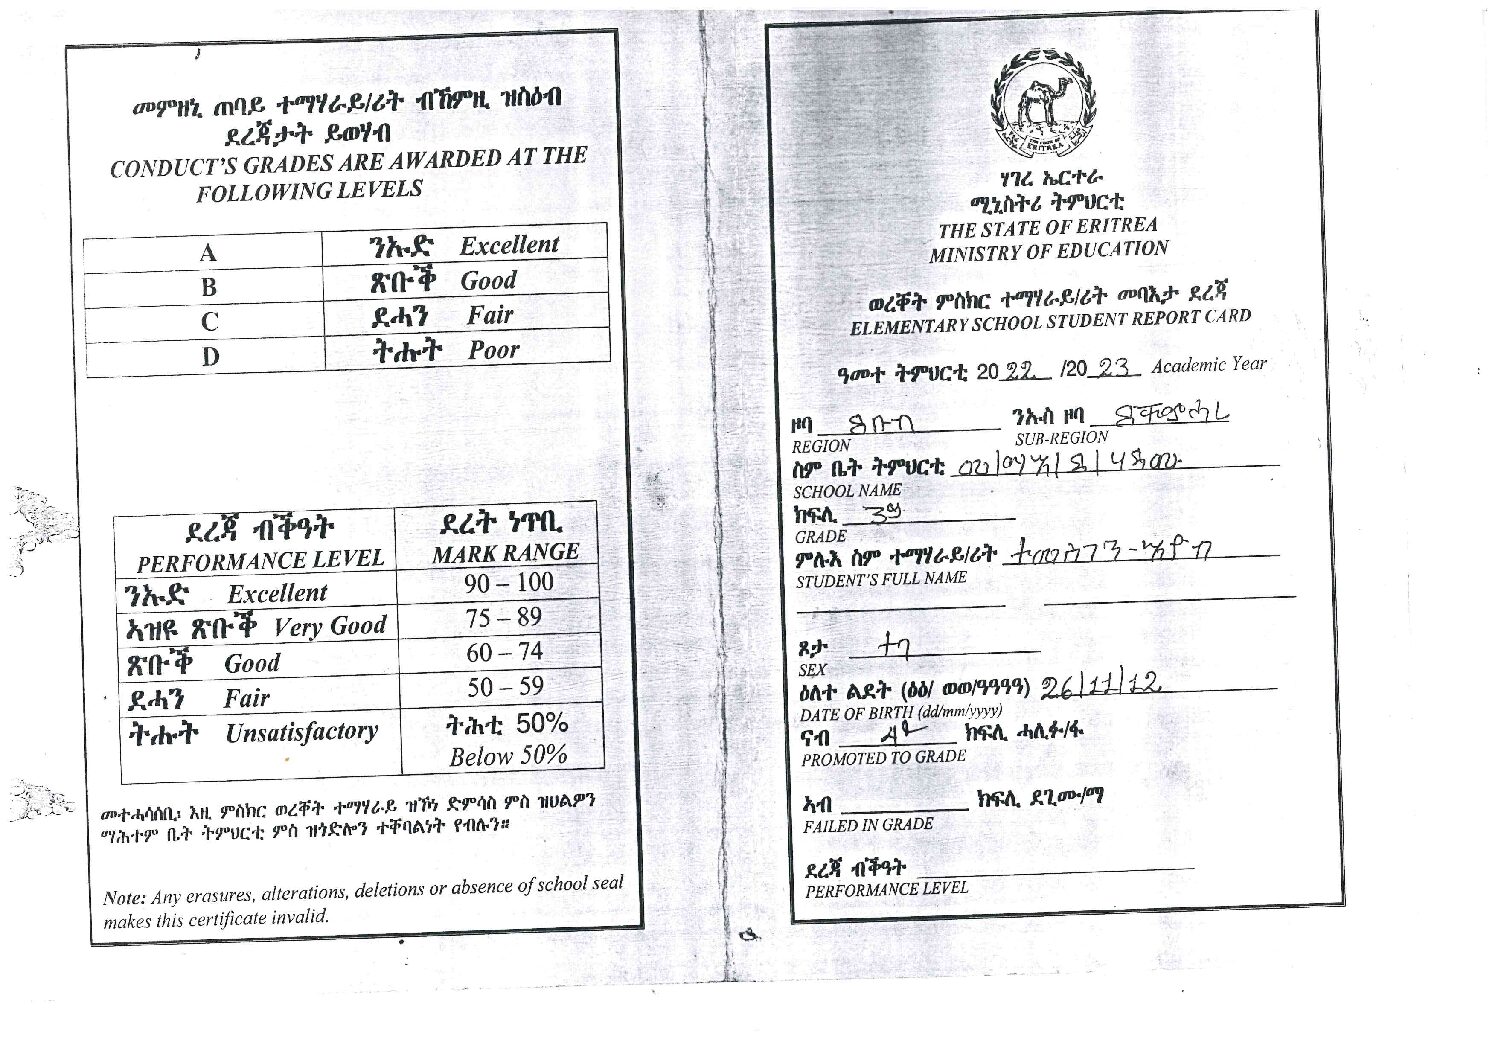 መምዘኒ ጠባይ ተማሃራይ/ሪት ብኸምዚ ዝስዕብ
ደረጃታት ይወሃብ
CONDUCT'S GRADES ARE AWARDED AT THE
FOLLOWING LEVELS
A ንኡድ Excellent
B ጽቡቕ Good
C ደሓን Fair
D ትሑት Poor
ደረጃ ብቕዓት ደረት ነጥቢ
PERFORMANCE LEVEL MARK RANGE
ንኡድ Excellent 90 – 100
ኣዝዩ ጽቡቕ Very Good 75 – 89
ጽቡቕ Good 60 – 74
ደሓን Fair 50 – 59
ትሑት Unsatisfactory ትሕቲ 50%
Below 50%
መተሓሳሰቢ፡ እዚ ምስክር ወረቐት ተማሃራይ ዝኾነ ድምሳስ ምስ ዝህልዎን
ማሕተም ቤት ትምህርቲ ምስ ዝጎድሎን ተቐባልነት የብሉን።
Note: Any erasures, alterations, deletions or absence of school seal
makes this certificate invalid.
ERITREA
ሃገረ ኤርትራ
ሚኒስትሪ ትምህርቲ
THE STATE OF ERITREA
MINISTRY OF EDUCATION
ወረቐት ምስክር ተማሃራይ/ሪት መባእታ ደረጃ
ELEMENTARY SCHOOL STUDENT REPORT CARD
ዓመተ ትምህርቲ 2022 /2023 Academic Year
ዞባ ደቡብ ንኡስ ዞባ ደቀምሓረ
REGION SUB-REGION
ስም ቤት ትምህርቲ
SCHOOL NAME
ክፍሊ 3ይ
GRADE
ምሉእ ስም ተማሃራይ/ሪት ተመስገን - ኣዮብ
STUDENT'S FULL NAME
ጾታ ተባ
SEX
ዕለተ ልደት (ዕዕ/ ወወ/ዓዓዓዓ) 26/11/12
DATE OF BIRTH (dd/mm/yyyy)
ናብ ክፍሊ ሓሊፉ/ፋ
PROMOTED TO GRADE
ኣብ ክፍሊ ደጊሙ/ማ
FAILED IN GRADE
ደረጃ ብቕዓት
PERFORMANCE LEVEL